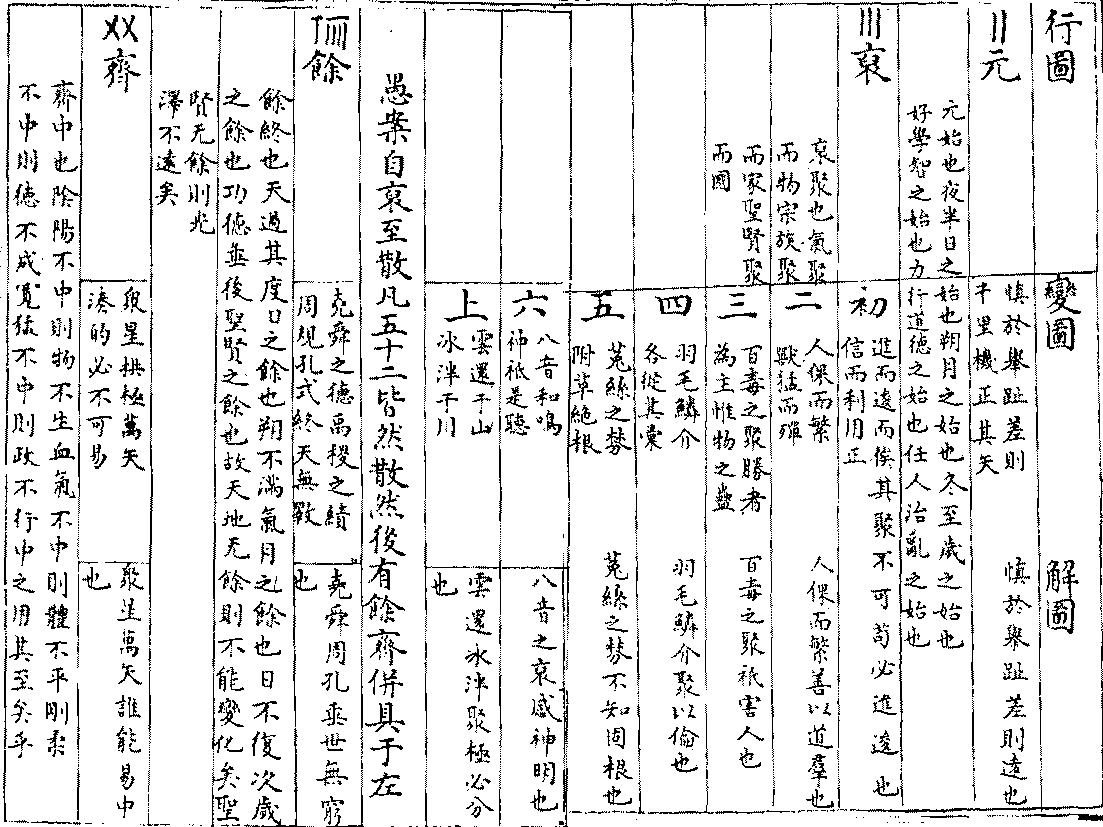 行圖
變圖
解圖
〢元
慎於舉趾差則
千里機正其矢
慎於舉趾差則遠也
元始也夜半日之始也朔月之始也冬至歲之始也
好學智之始也力行道德之始也任人治亂之始也
〣裒
裒聚也氣聚
而物宗族聚
而家聖賢聚
而國
初
進而逡而俟其聚不可苟必進逡也
信而利用正
二
人倮而繁
獸猛而殫
人倮而繁善以道羣也
三
百毒之聚勝者
為主惟物之蠱
百毒之聚祇害人也
四
羽毛鱗介
各從其彙
羽毛鱗介聚以倫也
五
菟絲之棼
附草絕根
菟絲之棼不知固根也
六
八音和鳴
神祇是聽
八音之裒感神明也
上
雲還于山
冰泮于川
雲還冰泮聚極必分
也
愚案自裒至散凡五十二皆然散然後有餘齊併具于左
餘
堯舜之德禹稷之績
周規孔式終天無斁
堯舜周孔垂世無窮
也
餘終也天過其度日之餘也朔不滿氣月之餘也日不復次歲
之餘也功德垂後聖賢之餘也故天地无餘則不能變化矣聖
賢无餘則光
澤不遠矣
〤〤齊
眾星拱極萬矢
湊的必不可易
眾星萬矢誰能易中
也
齊中也陰陽不中則物不生血氣不中則體不平剛柔
不中則德不成寬猛不中則政不行中之用其至矣乎